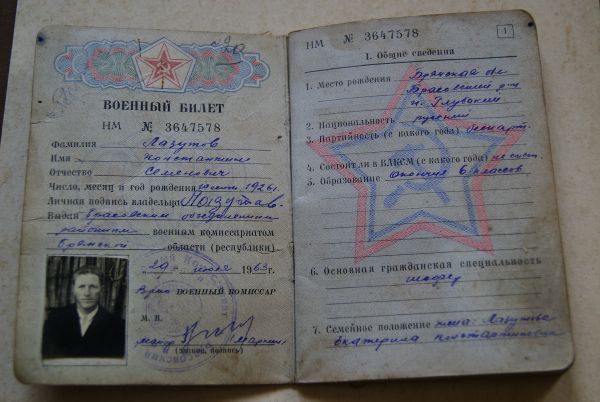 ВОЕННЫЙ БИЛЕТ
НМ № 3647578
Фамилия Лазутов
Имя Константин
Отчество Семенович
Число, месяц и год рождения 1926 г.
Личная подпись владельца
Выдан Брасовским объединенным
районным военным комиссариатом
Брянской области (республики)
"29" июля 1963 г.
Врио ВОЕННЫЙ КОМИССАР
М. П.
майор
(звание, подпись)
НМ № 3647578
1
I. Общие сведения
1. Место рождения Брянская обл
Брасовский р-н
п. Глубокий
2. Национальность русский
3. Партийность (с какого года) беспарт.
4. Состоит ли в ВЛКСМ (с какого года) не сост.
5. Образование окончил 6 классов
6. Основная гражданская специальность
шофер
7. Семейное положение жена: Лазутова
Екатерина Константиновна